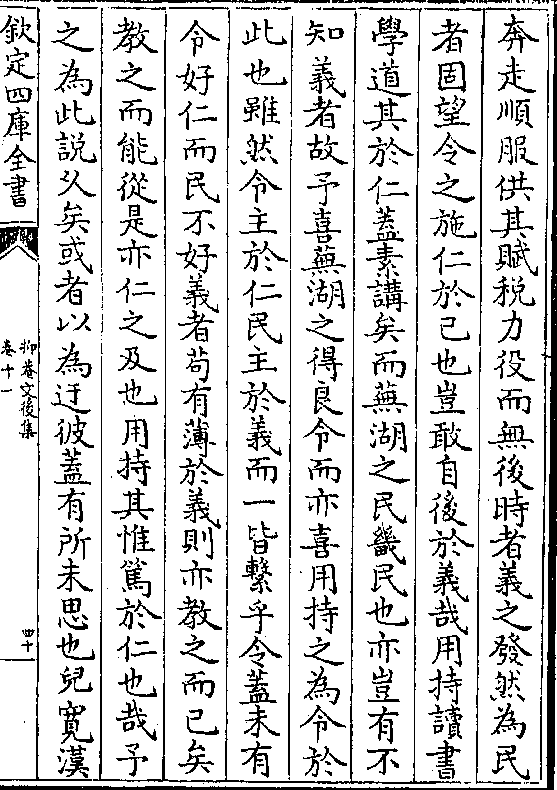 奔走順服供其賦稅力役而無後時者義之發然為民
者固望令之施仁於己也豈敢自後於義哉用持讀書
學道其於仁蓋素講矣而蕪湖之民畿民也亦豈有不
知義者故予喜蕪湖之得良令而亦喜用持之為令於
此也雖然令主於仁民主於義而一皆繫乎令蓋未有
令好仁而民不好義者苟有薄於義則亦教之而已矣
教之而能從是亦仁之及也用持其惟篤於仁也哉予
之為此說乆矣或者以為迂彼蓋有所未思也兒寬漢
欽定四庫全書
抑菴文後集
卷十一
四十